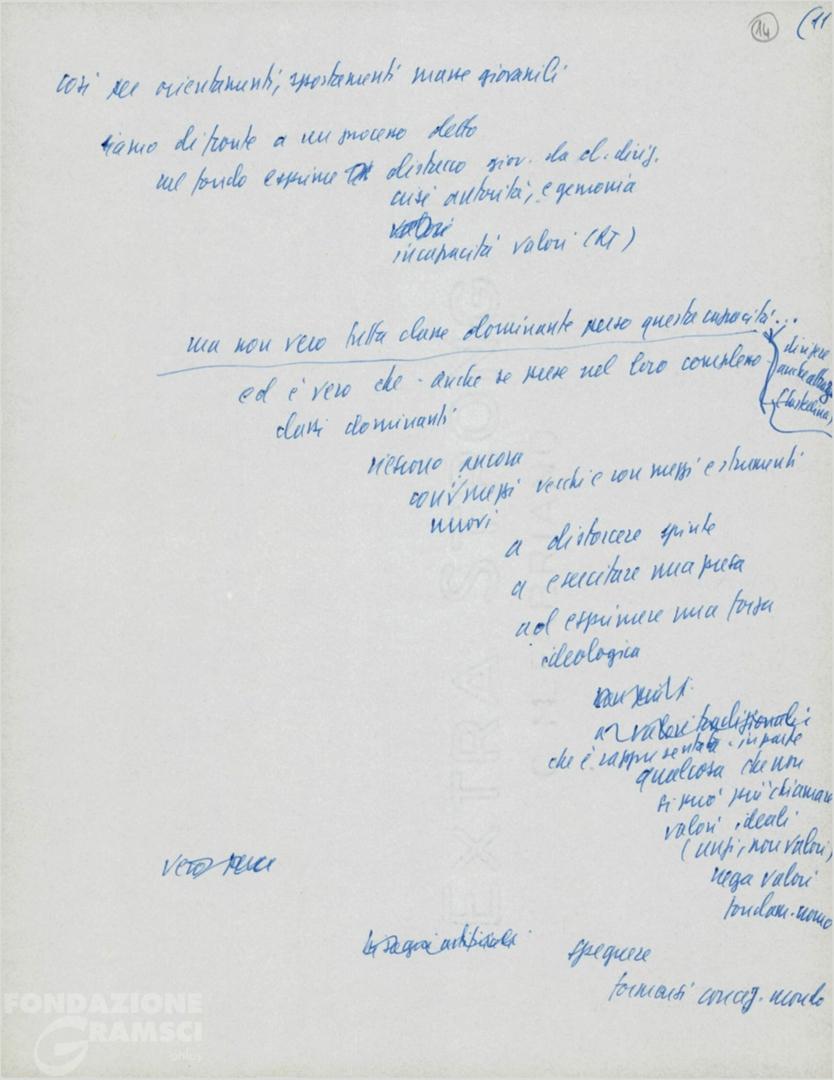 14 (11
così per orientamenti, spostamenti masse giovanili
siamo di fronte a un processo detto
nel fondo esprime distacco giov. da cl. dirig.
crisi autorità, egemonia
valori
incapacità valori (RT)
ma non vero tutta classe dominante perso questa capacità...
ed è vero che - anche se prese nel loro complesso
dirigere
anche
classi dominanti
riescono ancora
con mezzi vecchi e con mezzi e strumenti
nuovi
a distorcere spinte
a esercitare una presa
ad esprimere una forza
ideologica
valori tradizionali
che è rappresentata - in parte
qualcosa che non
si può più chiamare
valori ideali
(anzi, non valori)
nega valori
fondam. uomo
vero
bisogni artificiali
spegnere
formarsi concez. mondo
EXTRA STRONG
FONDAZIONE
GRAMSCI
onlus